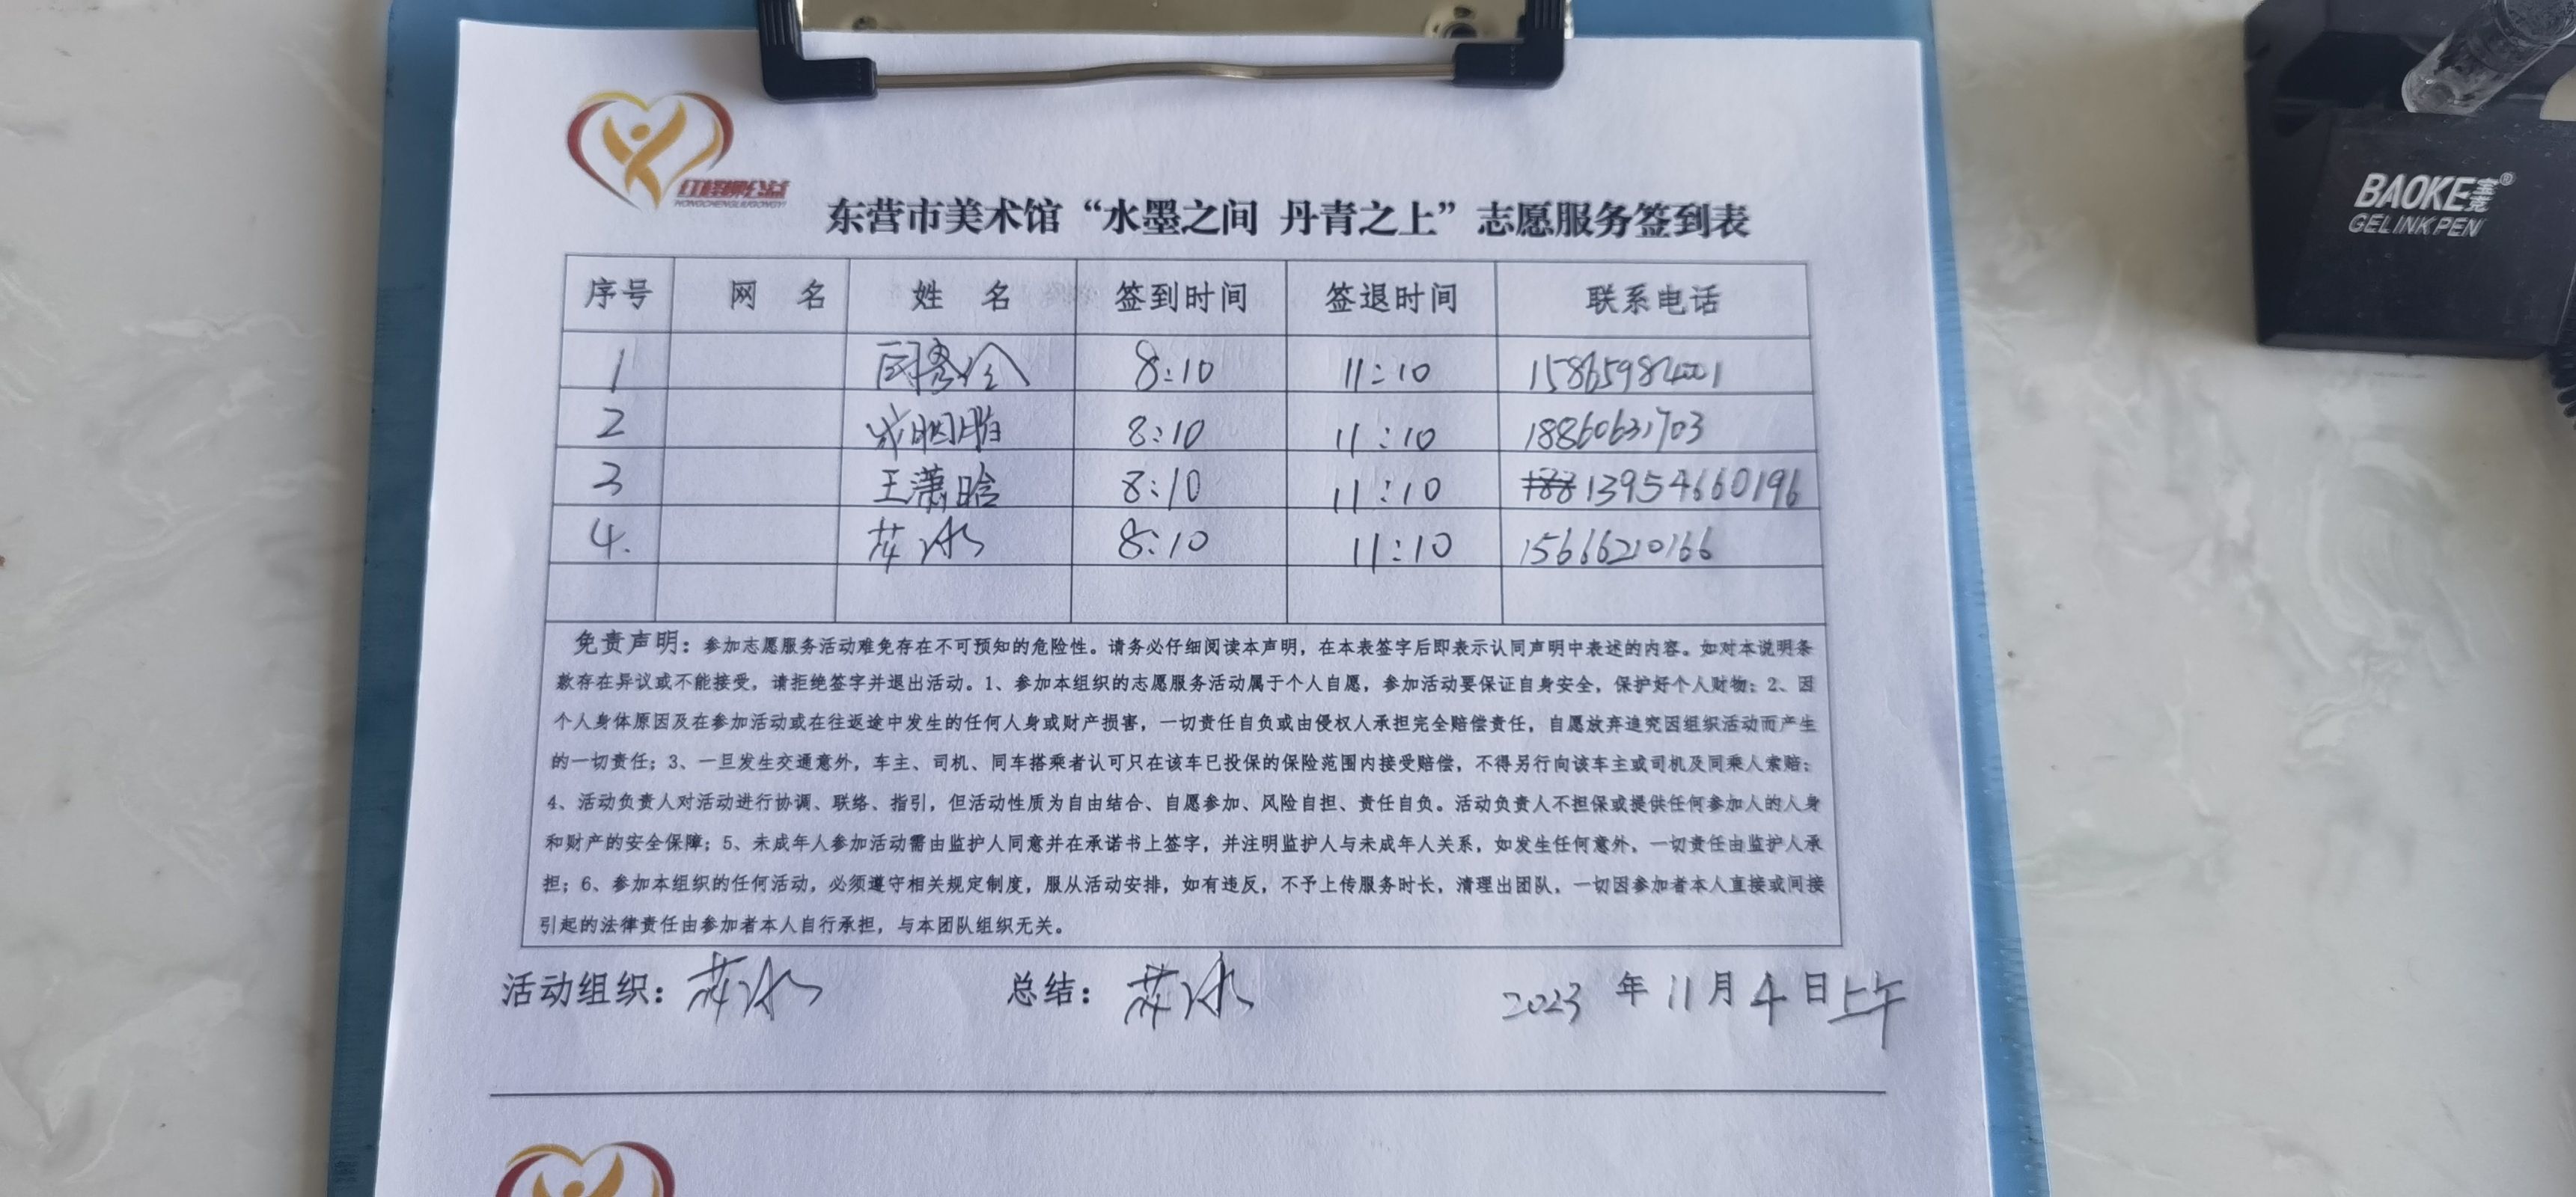 红柽柳公益
HONGCHENGLIUGONGYI
东营市美术馆“水墨之间 丹青之上”志愿服务签到表
序号 网 名 姓 名 签到时间 签退时间 联系电话
1 8:10 11:10
2 8:10 11:10 18860631703
3 王潇晗 8:10 11:10 13954660196
4. 8:10 11:10 15666210166
免责声明：参加志愿服务活动难免存在不可预知的危险性。请务必仔细阅读本声明，在本表签字后即表示认同声明中表述的内容。如对本说明条
款存在异议或不能接受，请拒绝签字并退出活动。1、参加本组织的志愿服务活动属于个人自愿，参加活动要保证自身安全，保护好个人财物；2、因
个人身体原因及在参加活动或在往返途中发生的任何人身或财产损害，一切责任自负或由侵权人承担完全赔偿责任，自愿放弃追究因组织活动而产生
的一切责任；3、一旦发生交通意外，车主、司机、同车搭乘者认可只在该车已投保的保险范围内接受赔偿，不得另行向该车主或司机及同乘人索赔；
4、活动负责人对活动进行协调、联络、指引，但活动性质为自由结合、自愿参加、风险自担、责任自负。活动负责人不担保或提供任何参加人的人身
和财产的安全保障；5、未成年人参加活动需由监护人同意并在承诺书上签字，并注明监护人与未成年人关系，如发生任何意外，一切责任由监护人承
担；6、参加本组织的任何活动，必须遵守相关规定制度，服从活动安排，如有违反，不予上传服务时长，清理出团队，一切因参加者本人直接或间接
引起的法律责任由参加者本人自行承担，与本团队组织无关。
活动组织： 总结： 2023 年 11 月 4 日上午
BAOKE宝克®
GEL INK PEN